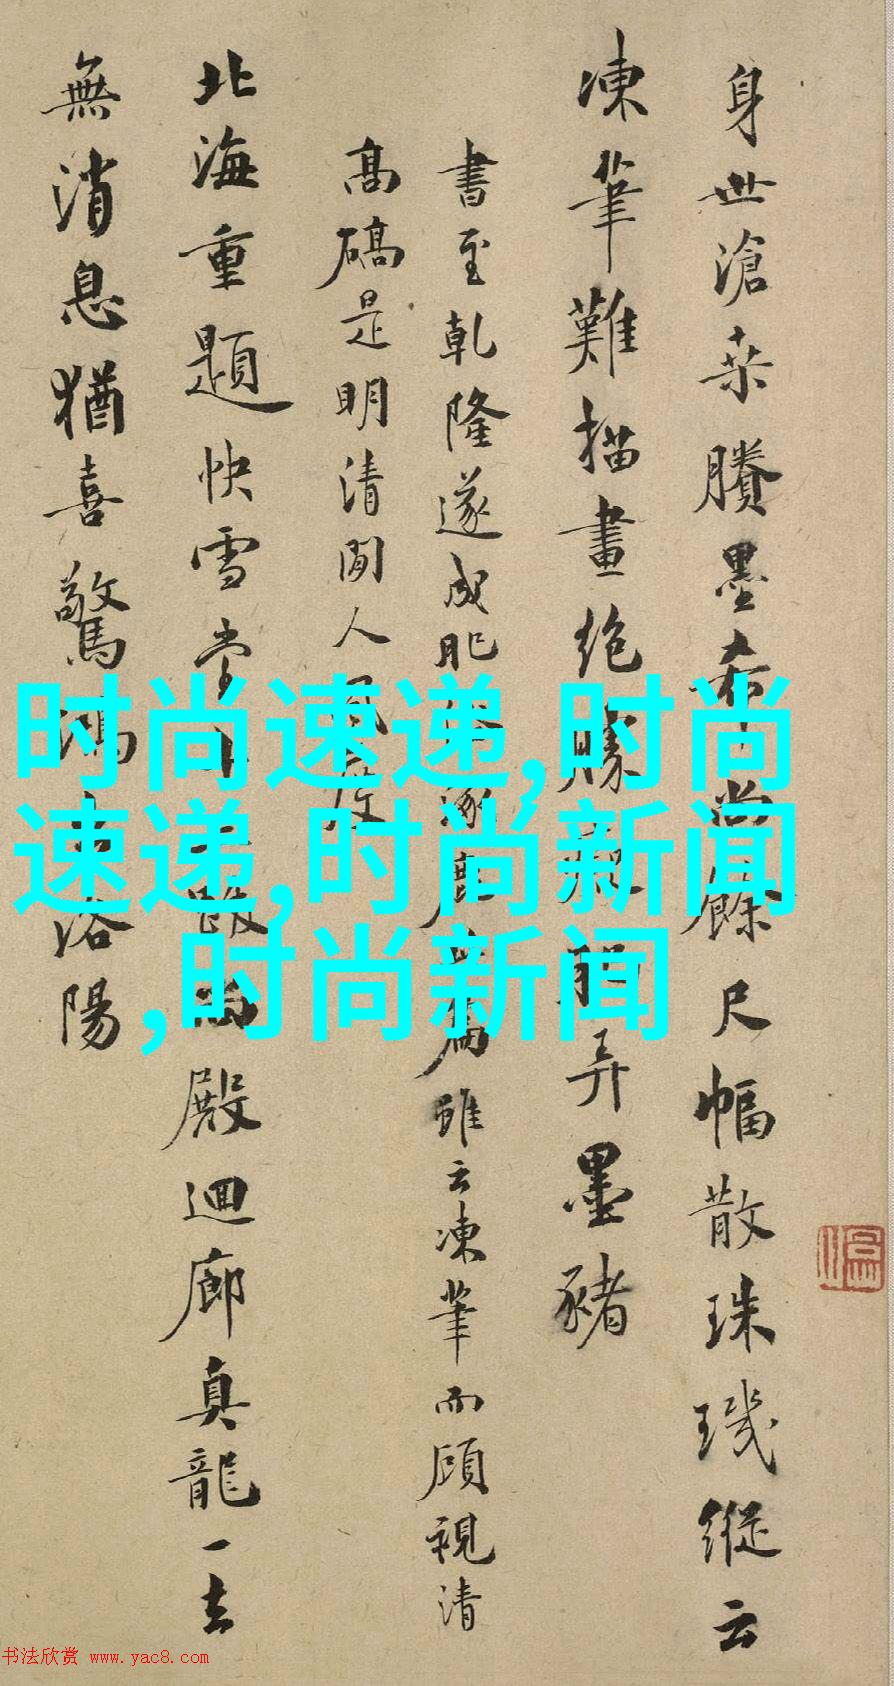 身世滄桒賸墨希尚餘尺幅散珠璣縱云
凍筆難描畫絶勝弄墨豬
書至乾隆遂成肥鹿篇雖云凍筆而顧視清
高碻是明清間人風度
北海重題快雪堂殿迴廊真龍一去
無消息猶喜驚鴻洛陽
时尚速递,时尚
速递,时尚新闻
,时尚新闻
书法欣赏 www.yac8.com